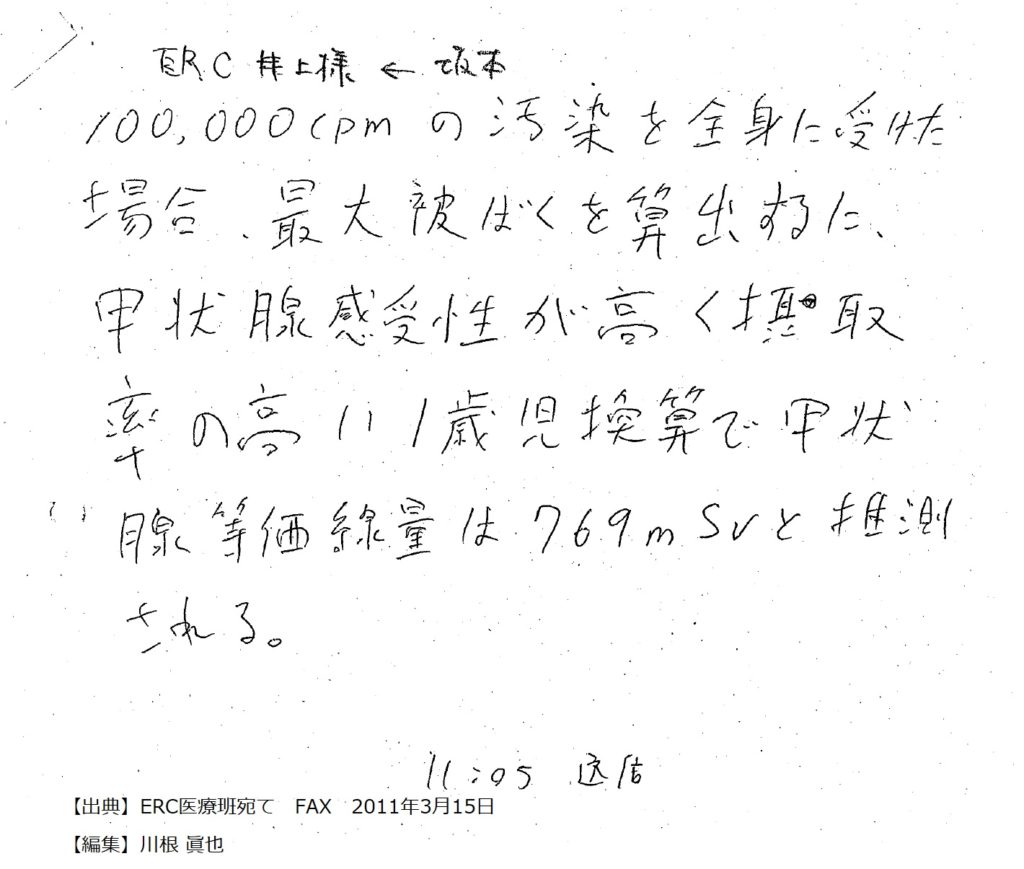 ERC 井上様 ← 坂本
100,000cpmの汚染を全身に受けた
場合、最大被ばくを算出するに、
甲状腺感受性が高く摂取
率の高い1歳児換算で甲状
腺等価線量は769mSvと推測
される。
11:05 送信
【出典】ERC医療班宛て FAX 2011年3月15日
【編集】川根 眞也